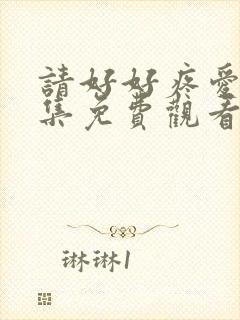 請好好疼愛
集免費觀看
琳琳1